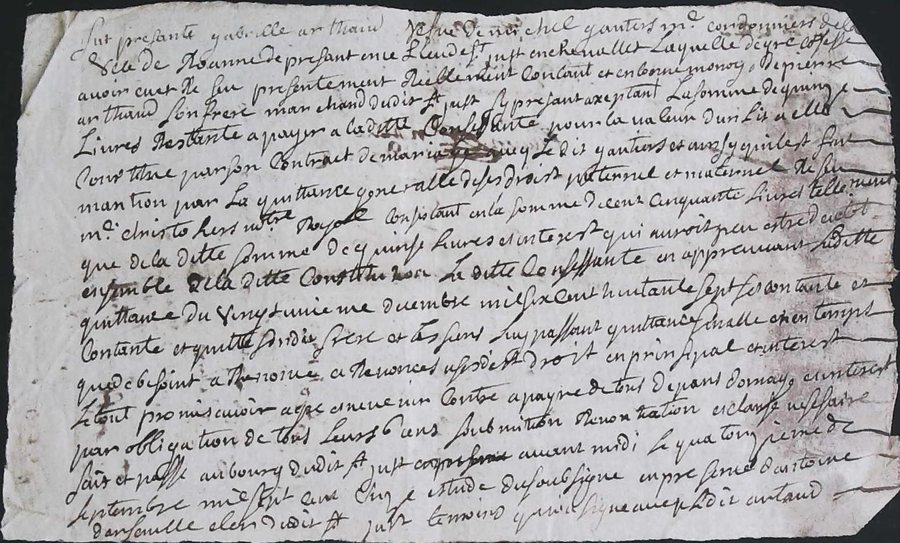 fut presante gabrielle arthaud vefve de michel gautiers mre cordonniers de la
ville de Roanne de presant en ce lieu de st just en chevallet laquelle de gre confesse
avoir eu et receu presentement reellement contant et en bonne monoye de pierre
arthaud son frere marchand dudit st just sy presant axeptant la somme de quinze
Livres Restante a payer a ladite Confessante pour la valeur d'un lit a elle
par son Contract de mariage avecq le dit gautiers et aussy quil est fait
mantion par la quittance generalle de ses droist paternel et maternel Receu
mre christo hers notre Royal Consistant en la somme de cent cinquante livres tellement
que de la ditte somme de quinse livres et interest qui auroit peu estre deub et
ensemble de la ditte Constitution la ditte Confessante en appreuvant laditte
quittance du vingt unieme decembre mil six cent huitante sept sest contante et
Contante et quitte sondit frere et les siens luy passant quittance finalle et en temps
que de besoint a Renoncé et Renonces a susdist droit en principal et interest
Le tout promis avoir agre et ne venir Contre a payne de tous depans domage et interest
par obligation de tous leurs biens soubmition Renontiation et clause nessaire
fait et passé au bourg dudit st just avant midi le quatorzieme de
septembre mil sept cent estude du soubsigné en presence d'antoine
clerc dudit st just temoins qui a signé avec ledit artaud